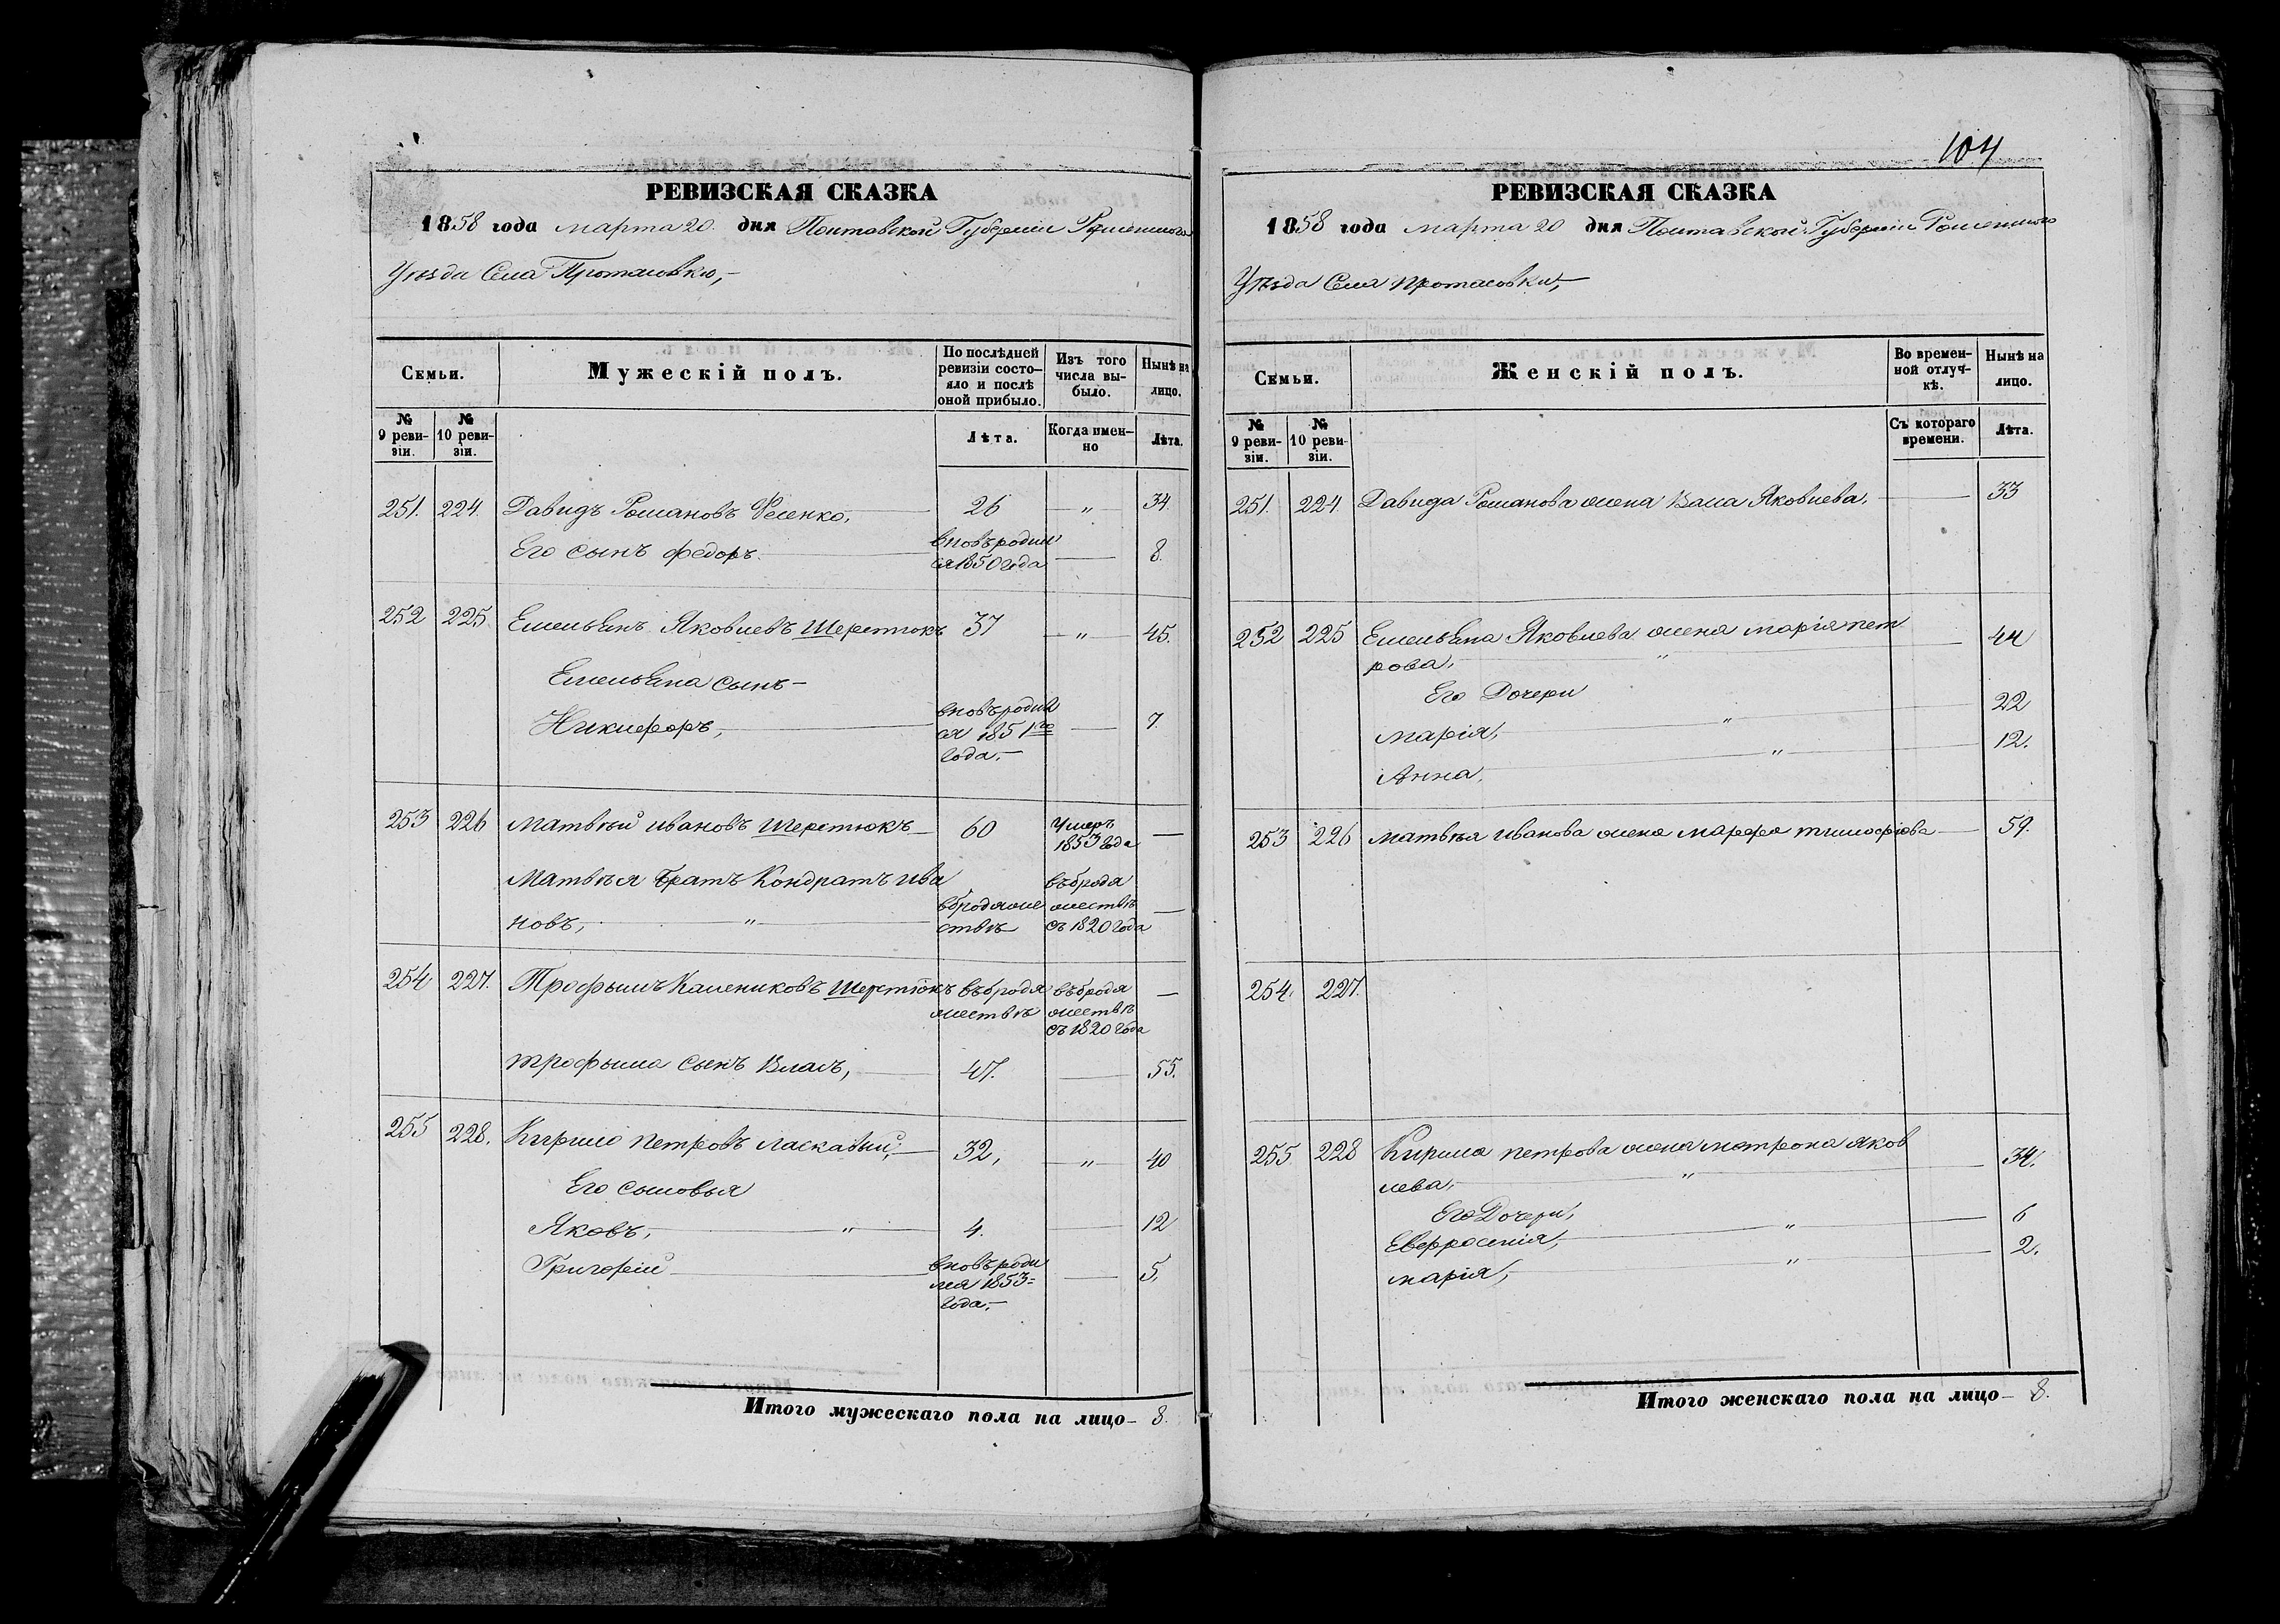 РЕВИЗСКАЯ СКАЗКА
1858 года марта 20 дня Полтавской Губерніи Роменского
Уѣзда Села Протасовки,
Семьи.
Мужескій полъ.
По послѣдней ревизіи состояло и послѣ оной прибыло.
Изъ того числа выбыло.
Нынѣ на лицо.
№ 9 ревизіи.
№ 10 ревизіи.
Лѣта.
Когда именно
Лѣта.
251. 224. Давидъ Романовъ Фесенко, 26 — „ — 34.
Его сынъ Федоръ вновь родил
ся 1850 года — 8.
252 225 Емельянъ Яковлевъ Шерстюкъ 37 — „ — 45.
Емельяна сынъ —
Никифоръ, вновь родил
ся 1851го
года. — 7.
253 226 Матвѣй Ивановъ Шерстюкъ — 60 Умеръ
1853 года —
Матвѣя братъ Кондратъ Ива
новъ, „ вбродяже
ствѣ въ бродя
жествѣ
съ 1820 года —
254 227. Трофымъ Шерстюкъ въ бродя
жествѣ въ бродя
жествѣ
съ 1820 года —
Трофыма сынъ Власъ, — 47. — 55.
255 228. Кирило Петровъ Ласкавый, — 32, — „ — 40
Его сыновья
Яковъ, „ 4. — 12
Григорій вновь роди
лся 1853
года. — 5.
Итого мужескаго пола на лицо — 8.
104
РЕВИЗСКАЯ СКАЗКА
1858 года марта 20 дня Полтавской Губерніи Роменского
Уѣзда Села Протасовки, —
Семьи.
Женскій полъ.
Во временной отлучкѣ.
Нынѣ на лицо.
№ 9 ревизіи.
№ 10 ревизіи.
Съ котораго времени.
Лѣта.
251. 224 Давида Романова жена Васа Яковлева, — 33
252 225 Емельяна Яковлева жена Марія Пет
рова, „ 44
Его Дочери
Марія, „ 22
Анна, „ 12.
253 226 Матвѣя Иванова жена Марфа Тимофіова — 59.
254. 227.
255. 228 Кирила Петрова жена Матрона Яков
лева, „ 34.
Его Дочери,
Евфросенія, „ 6
Марія, „ 2.
Итого женскаго пола на лицо — 8.